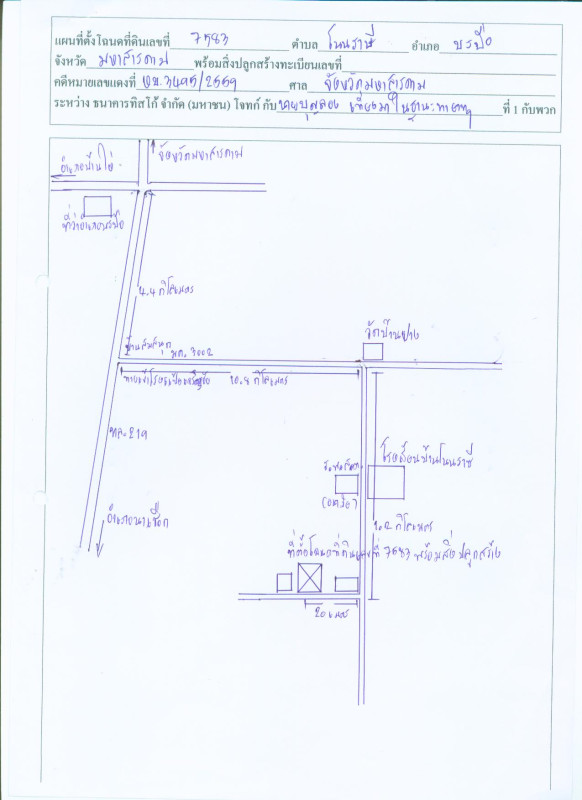 แผนที่ตั้งโฉนดที่ดินเลขที่ 7583 ตำบล โนนราษี อำเภอ บรบือ
จังหวัด มหาสารคาม พร้อมสิ่งปลูกสร้างทะเบียนเลขที่
คดีหมายเลขแดงที่ ผบ.3495/2559 ศาล จังหวัดมหาสารคาม
ระหว่าง ธนาคารทิสโก้ จำกัด (มหาชน) โจทก์ กับ ในฐานะทายาท ที่ 1 กับพวก
จังหวัดมหาสารคาม
อำเภอบ้านไผ่
ที่ว่าอำเภอบรบือ
4.4 กิโลเมตร
วัดบ้านฝาง
มค. 3002
10.8 กิโลเมตร
ทล. 219
โรงเรียนบ้านโนนราษี
อำเภอนาเชือก
1.2 กิโลเมตร
ที่ตั้งโฉนดที่ดินเลขที่ 7583 พร้อมสิ่งปลูกสร้าง
20 เมตร